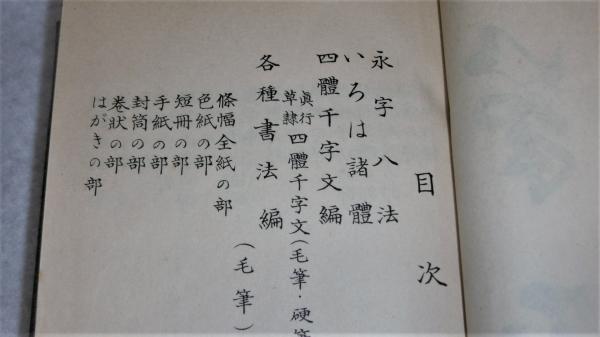 目次
永字八法
いろは諸體
四體千字文編
眞行草隸四體千字文(毛筆・硬筆
各種書法編(毛筆)
條幅全紙の部
色紙の部
短冊の部
手紙の部
封筒の部
卷狀の部
はがきの部